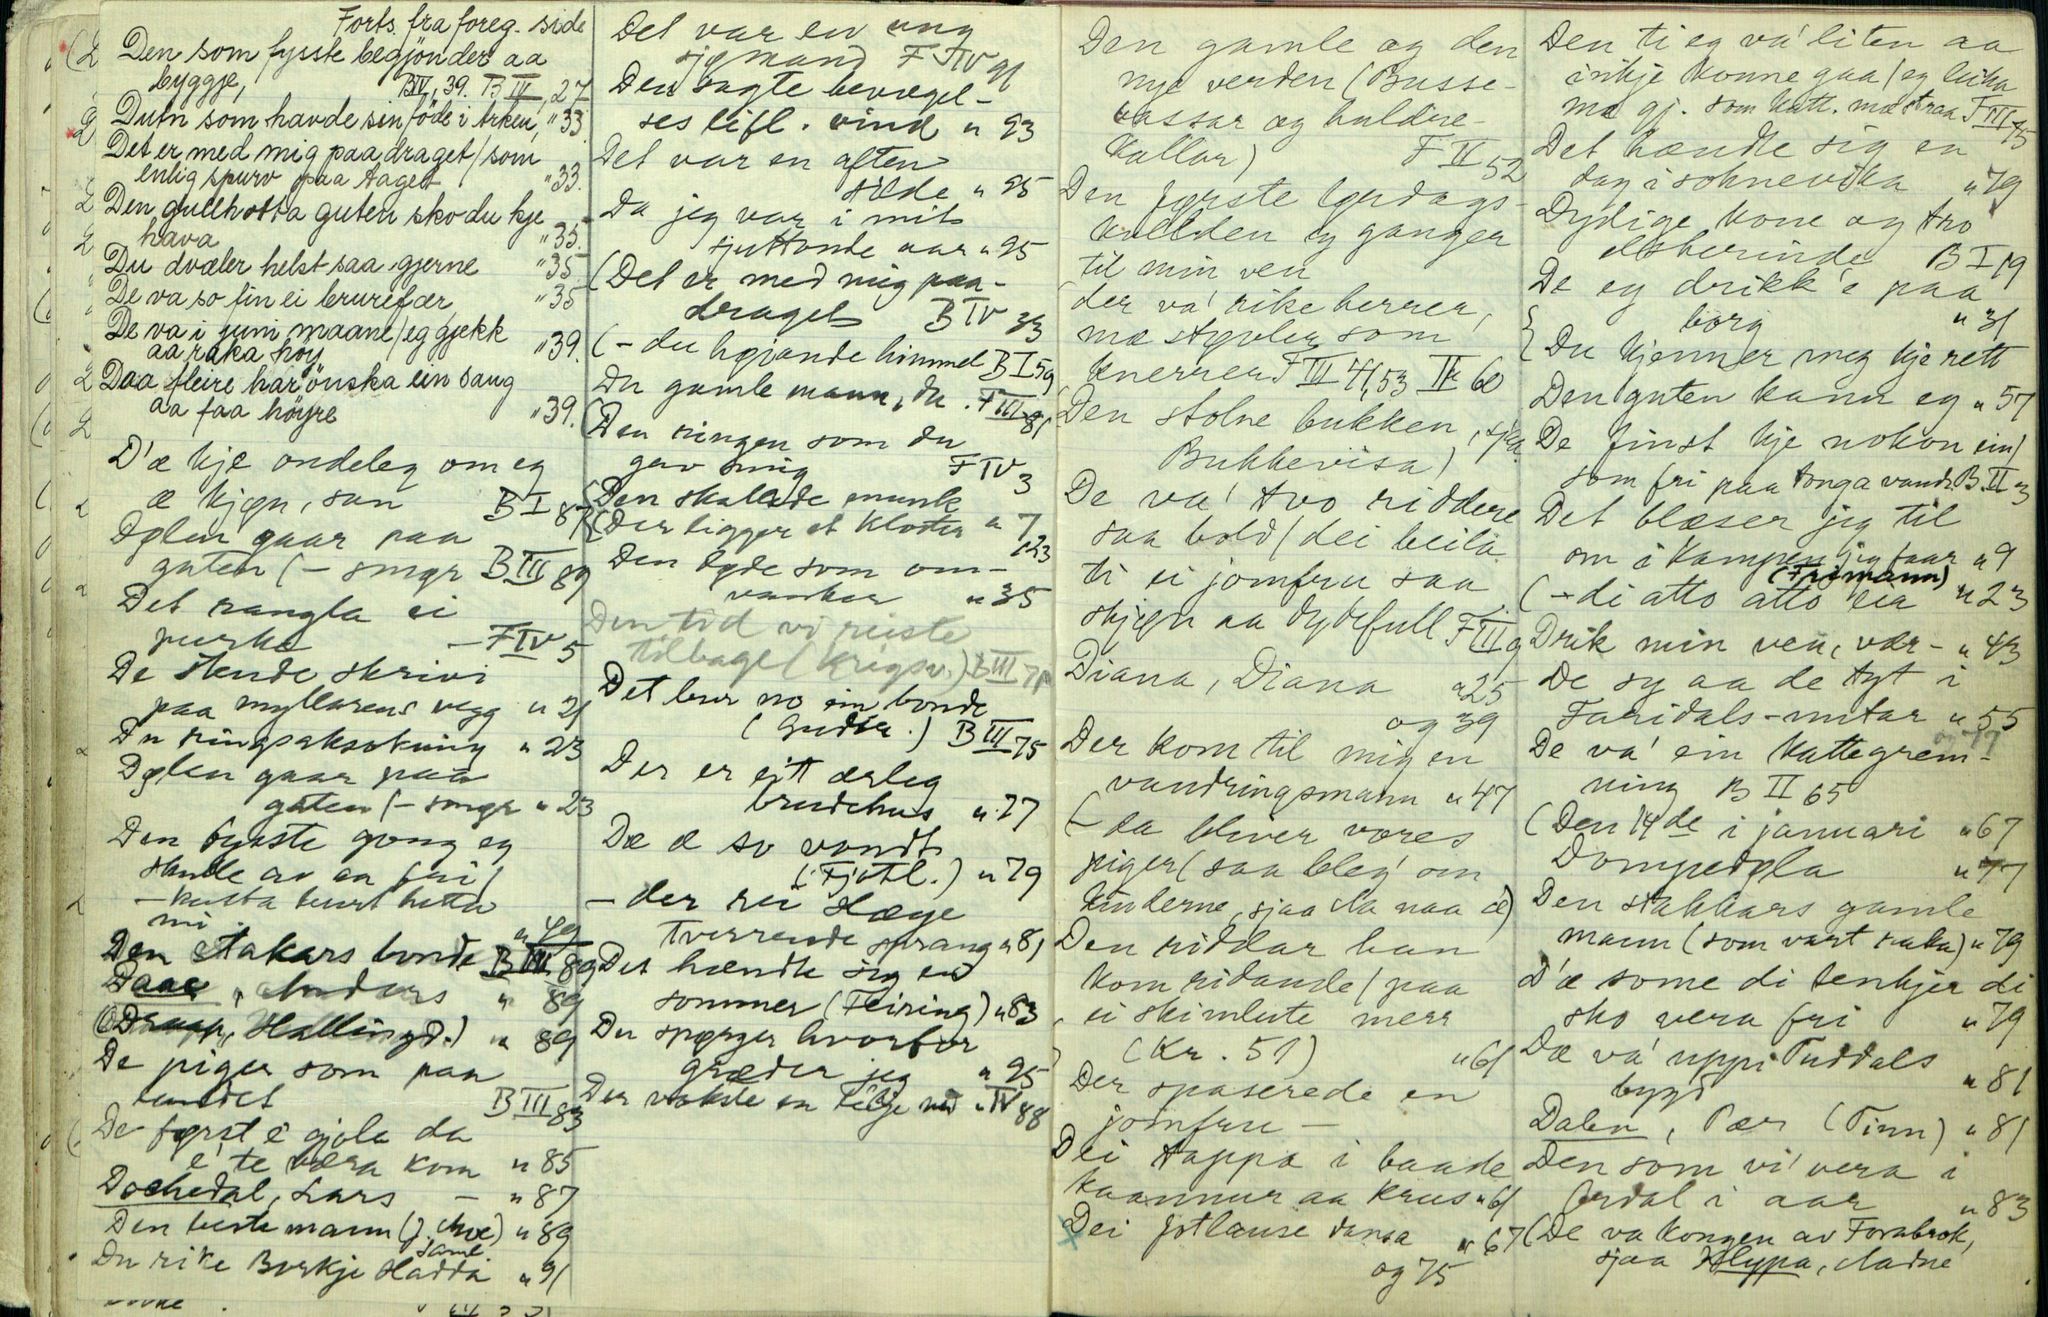 Forts. fra foreg. side
Den som fysste begjönder aa
byggje, BIV, 39. B III, 27
Duen som havde sin föde i Arken, " 33
Det er med mig paa draget / som
enlig spurv paa taget " 33.
Den gullhotta guten sko du kje
hava " 35.
Du dvæler helst saa gjerne " 35
De va so fin ei brurefær " 35
De va i juni maane / eg gjekk
aa raka höy " 39.
Daa fleire har önska ein saang
aa faa höyre " 39.
D'æ kje ondeleg om eg
æ kjøn, san B I 87
Dølen gaar paa
gaten (- smør B III 89
Det rangla ei
purka - F IV 5
De stende skrivi
paa myllarens vegg " 21
Du ringsaksokning " 23
Dølen gaar paa
gaten (- smør " 23
Den fysste gong eg
skulle av aa fri /
- kasta burt hetta
mi " 49
Den stakars bonde B III 89
Daae, Anders " 89
(Draap, Hallingd.) " 89
De piger som paa
landet B III 83
De først e' gjola da
e' te væra kom " 85
Dockedal, Lars - " 87
Den beste mann (J. Moe) " 89
saml.
Du rike Borkje Hadda " 91
Det var en ung
sjømand F IV 91
Den sagte bevægel-
ses lifl. vind " 93
Det var en aften
silde " 95
Da jeg var i mit
syttonde aar " 95
(Det er med mig paa-
draget B IV 33
(- du højande himmel B I 59
Du gamle mann, du. F III 81
(Den ringen som du
gav mig F IV 3
{Den skallede munk
{(Der ligger et kloster " 7
23
Den Øde som om-
vanker " 35
Den tid vi reiste
tilbage (Krigsv.) B III 71
Det bur no ein bonde
(Gudbr.) B III 75
Der er eitt ærleg
brudehus " 77
Dæ æ so vondt
(Fjøtl.) " 79
- der rei Hæge
tverrende sprang " 81
Det hændte sig en
sommer (Feiring) " 83
Du spørger hvorfor
græder jeg " 95
Der vokste en Lilje ved " IV 88
Den gamle og den
nye verden (Busse-
vassar og huldre-
kallar) F II 52
Den første lørdags-
kvelden eg ganger
til min ven
der va' rike herrer,
mæ støvler som
knerrer F III 41, 53 IV 60
(Den stolne bukken, sjaa
Bukkevisa)
De va' tvo riddere
saa bold / dei beila
ti ei jomfru saa
skjøn aa dydefull F III 9
Diana, Diana " 25
og 39
Der kom til mig en
vandringsmann " 47
(- da bliver vores
piger (saa bleg' om
kinderne, sjaa Na naa æ)
Den riddar han
kom ridande / paa
ei skimlute merr
(Kr. 51) " 61
Der spaserede en
jomfru -
Dei tappa i baade
kaannur aa krus " 61
Dei fotlause dansa " 67
og 75
Den ti eg va' liten aa
inkje konne gaa / eg leika
mæ gj. som katt. mæ straa F III 45
Det hændte sig en
dag i sohnevika " 79
Dydige kone og tro
elskerinde B I 19
De eg drikk'e paa
borg " 31
Du kjenner meg kje rett
Den guten kann eg " 57
De finst kje nokon ein /
som fri paa tonga vandr. B II 3
Det blæser jeg til
om i kampen jeg faar " 9
(Frimann)
(- di atto atto eia " 23
Drik min ven, vær - " 43
De sy aa de tyt i
Faridals-nutar " 55
og 77
De va' ein kattegrem-
ning B II 65
(Den 14de i januari " 67
Dompedøla " 77
Den stakkars gamle
mann (som vart raka) " 79
D'æ some di tenkjer di
sko vera fri " 79
Dæ va' uppi Tuddals
bygd " 81
Dalen, Pær (Tinn) " 81
Den som vi' vera i
Ørdal i aar " 83
(De va kongen av Forabrok,
sjaa Klypa, Aadne